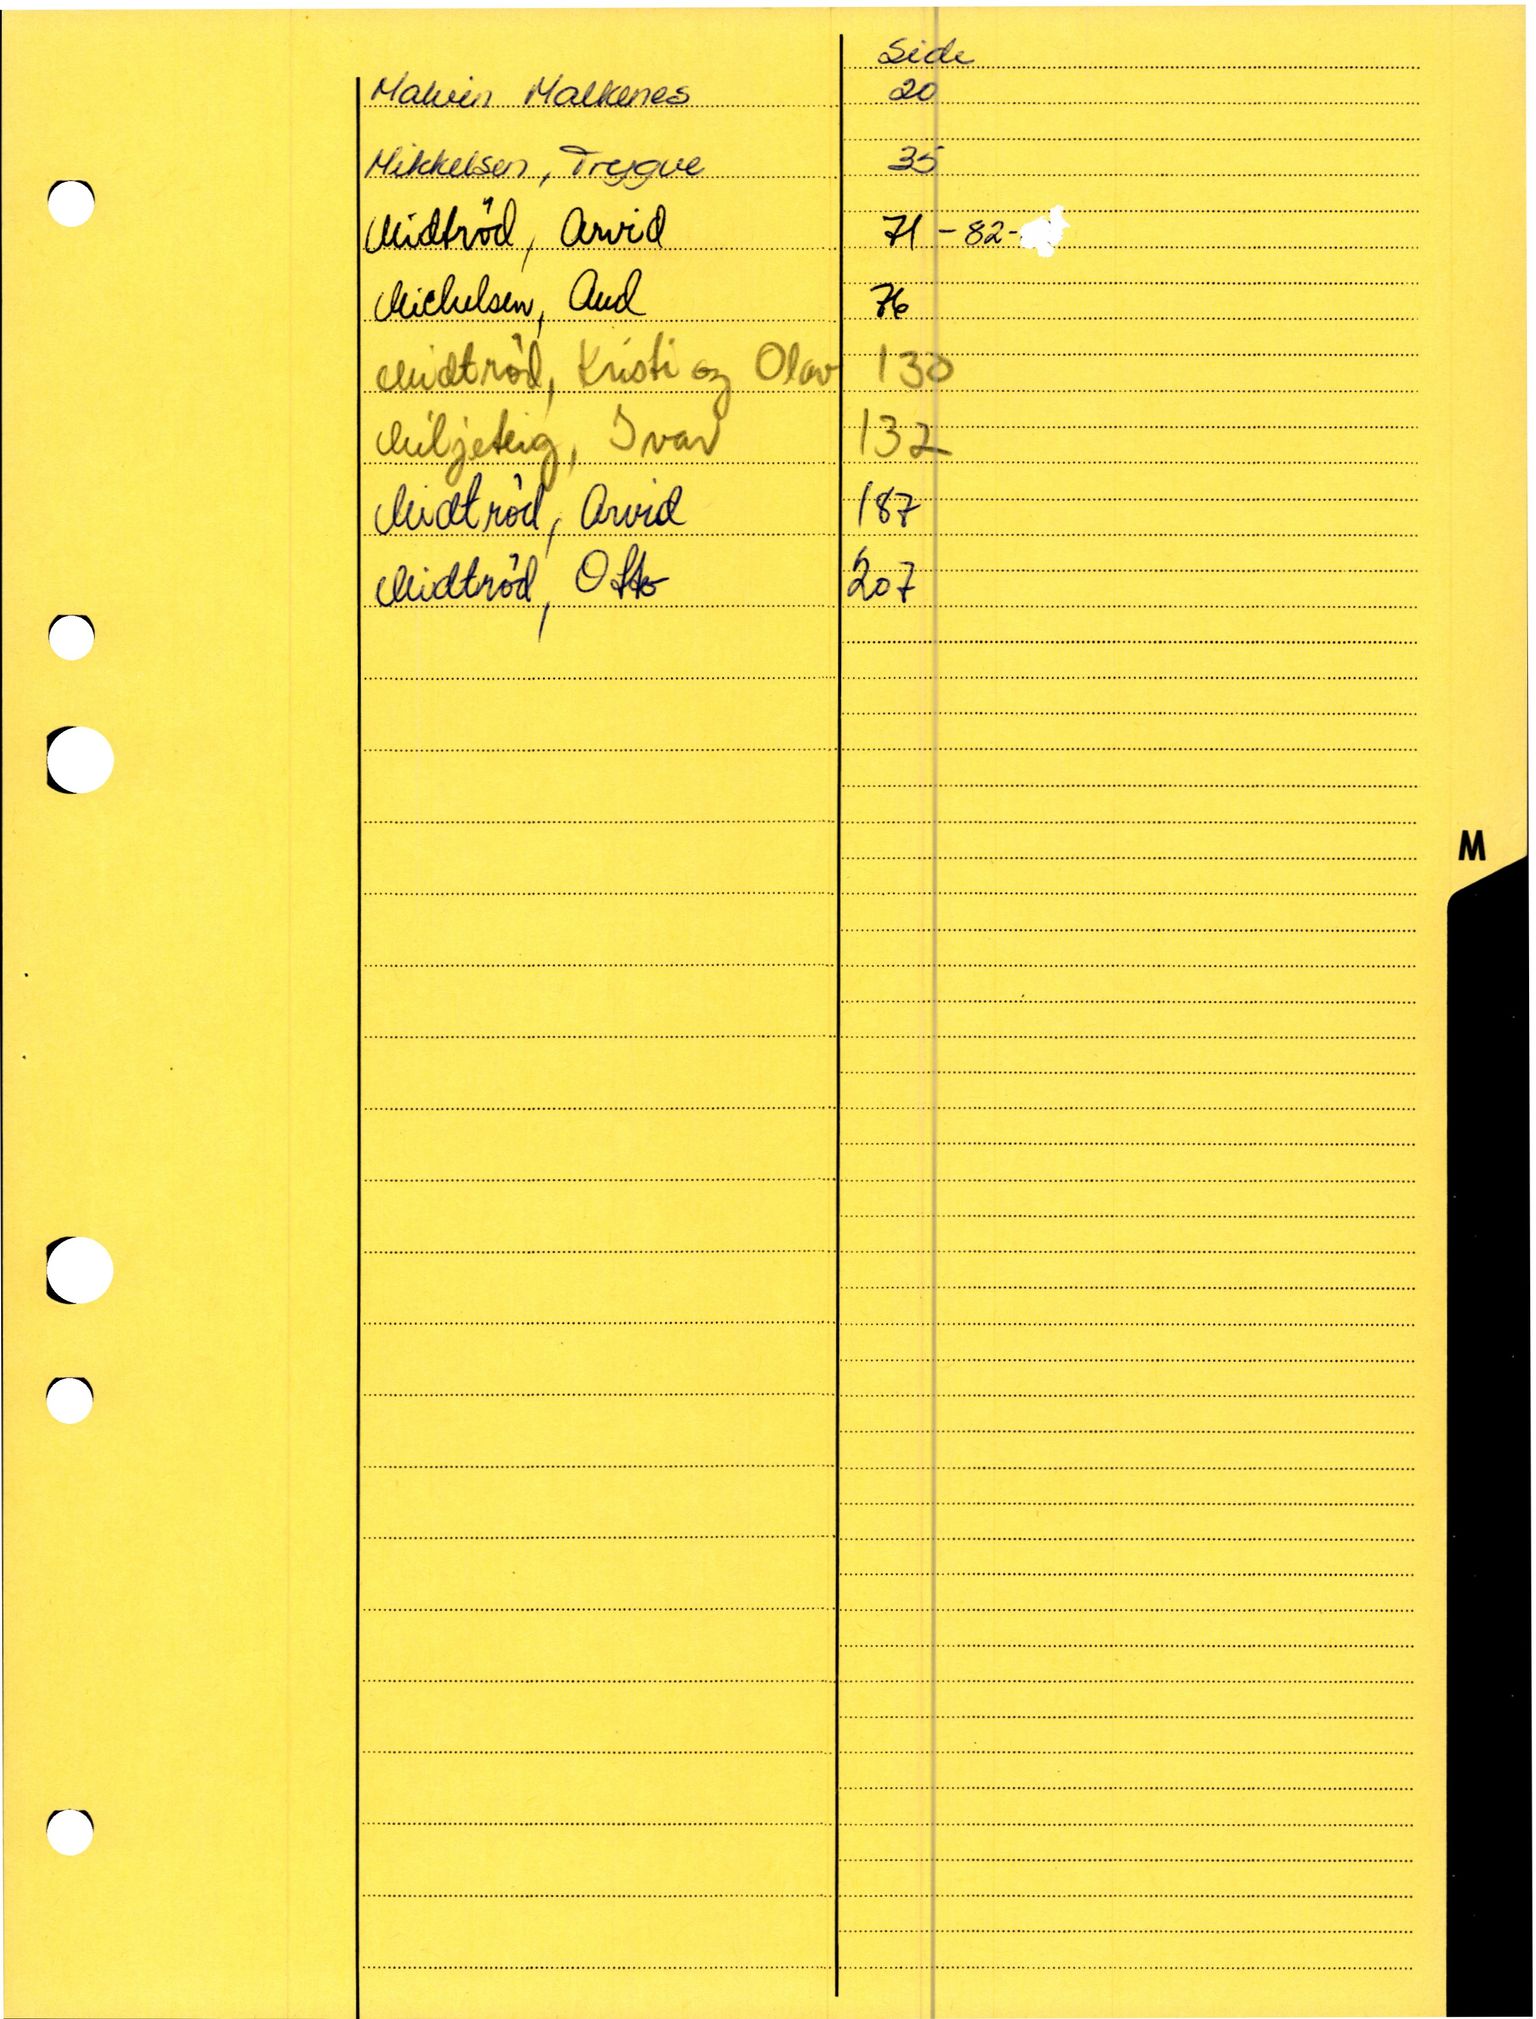 Side
Malvin Malkenes 20
Mikkelsen, Trygve 35
Midtröd, Arvid 71 - 82 -
Michelsen, Aud 76
Midtröd, Kristi og Olav 130
Miljeteig, Ivar 132
Midtröd, Arvid 187
Midtröd, Otto 207
M